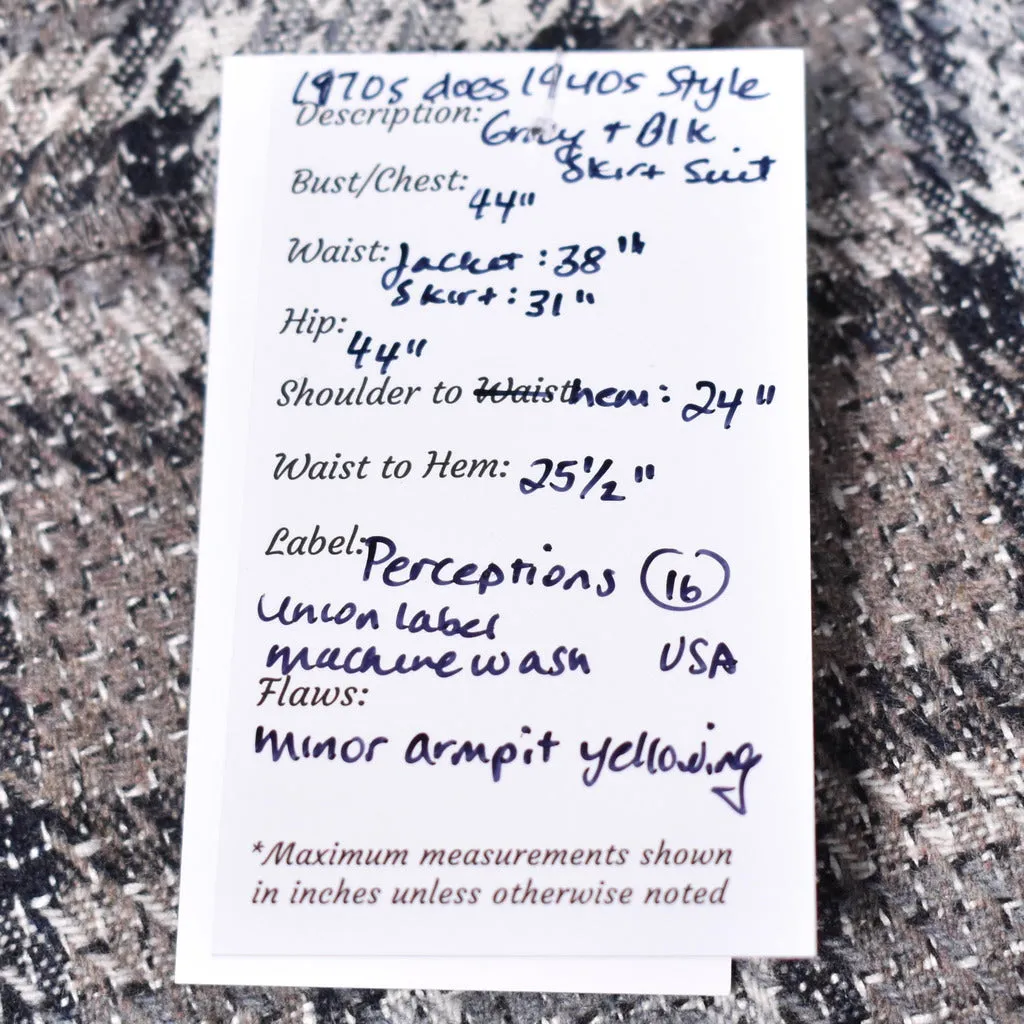 1970s does 1940s Style
Description: Gray + Blk
Skirt Suit
Bust/Chest: 44"
Waist: Jacket: 38"
Skirt: 31"
Hip: 44"
Shoulder to Waist hem: 24"
Waist to Hem: 25 1/2"
Label: Perceptions 16
Union label
machine wash USA
Flaws:
Minor armpit yellowing
*Maximum measurements shown
in inches unless otherwise noted